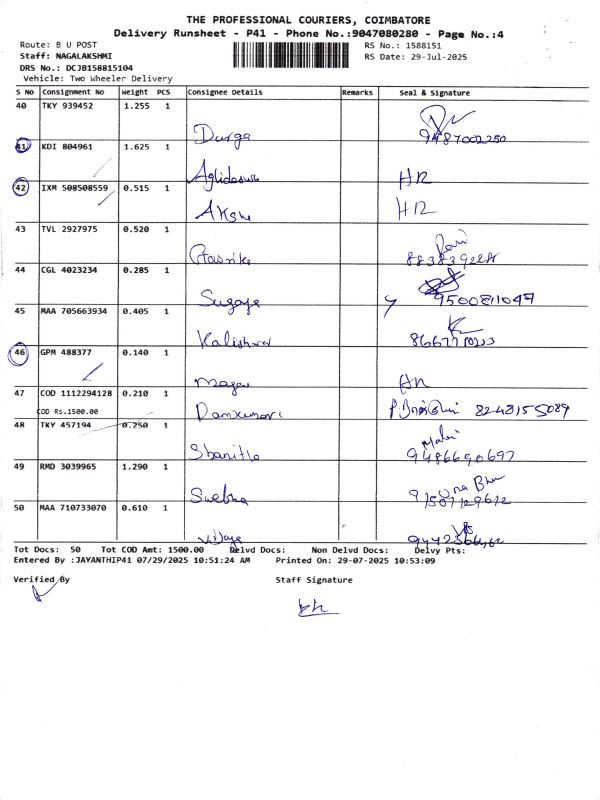 THE PROFESSIONAL COURIERS, COIMBATORE
Delivery Runsheet - P41 - Phone No.:9047080280 - Page No.:4
Route: B U POST
RS No.: 1588151
Staff: NAGALAKSHMI
RS Date: 29-Jul-2025
DRS No.: DCJB158815104
Vehicle: Two Wheeler Delivery
S No Consignment No Weight PCS Consignee Details Remarks Seal & Signature
40 TKY 939452 1.255 1
Durga 9487002250
41 KDI 804961 1.625 1
HR
42 IXM 508508559 0.515 1
Akshe HR
43 TVL 2927975 0.520 1
44 CGL 4023234 0.285 1
Sugaya 9500811047
45 MAA 705663934 0.405 1
46 GPM 488377 0.140 1
47 COD 1112294128 0.210 1
COD Rs.1500.00
8248155089
48 TKY 457194 0.250 1
9486690697
49 RMD 3039965 1.290 1
Swebha
50 MAA 710733070 0.610 1
Vijaya
Tot Docs: 50 Tot COD Amt: 1500.00 Delvd Docs: Non Delvd Docs: Delvy Pts:
Entered By :JAYANTHIP41 07/29/2025 10:51:24 AM Printed On: 29-07-2025 10:53:09
Verified By Staff Signature